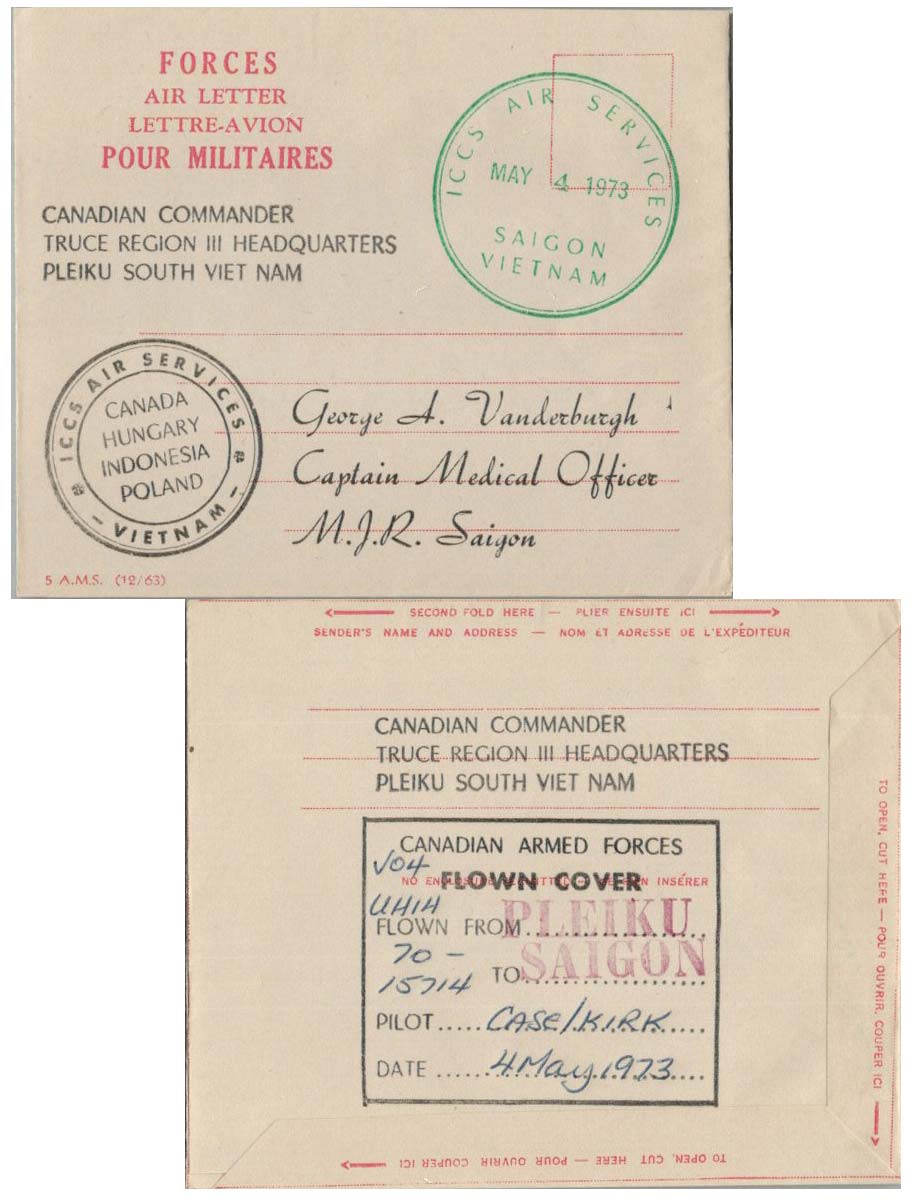 FORCES
AIR LETTER
LETTRE-AVION
POUR MILITAIRES
ICCS AIR SERVICES
MAY 4 1973
SAIGON
VIETNAM
CANADIAN COMMANDER
TRUCE REGION III HEADQUARTERS
PLEIKU SOUTH VIET NAM
ICCS AIR SERVICES
CANADA
HUNGARY
INDONESIA
POLAND
- VIETNAM -
George A. Vanderburgh
Captain Medical Officer
M.J.R. Saigon
5 A.M.S. (12/63)
SECOND FOLD HERE — PLIER ENSUITE ICI
SENDER'S NAME AND ADDRESS — NOM ET ADRESSE DE L'EXPÉDITEUR
CANADIAN COMMANDER
TRUCE REGION III HEADQUARTERS
PLEIKU SOUTH VIET NAM
CANADIAN ARMED FORCES
V04
NO INSÉRER
FLOWN COVER
UH1H
FLOWN FROM PLEIKU
70-
15714
TO SAIGON
PILOT ..... CASE/KIRK .....
DATE ...... 4 May 1973 ....
TO OPEN, CUT HERE — POUR OUVRIR, COUPER ICI
TO OPEN, CUT HERE — POUR OUVRIR COUPER ICI